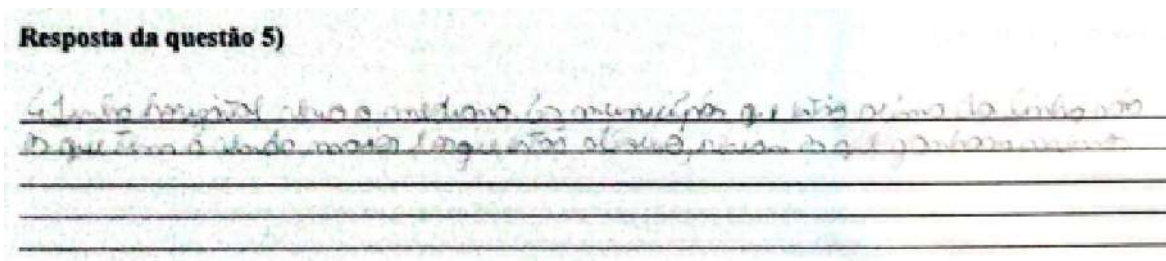 Resposta da questão 5)
linha horizontal a mediana os municípios que estão acima da linha são
os que tem a renda maior e os que estão abaixo, seriam os que ganham